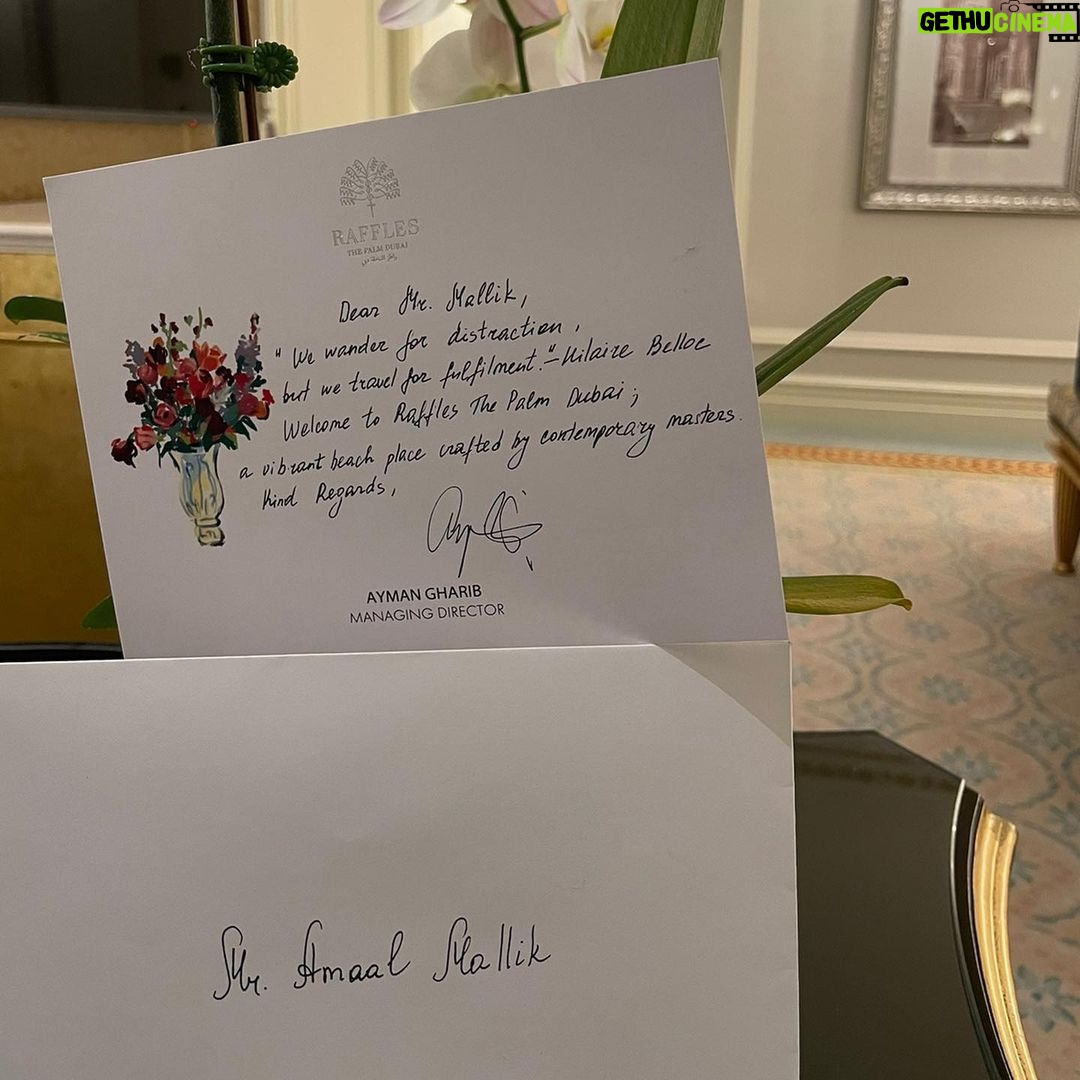 GETHUCINEMA
RAFFLES
THE PALM DUBAI
Dear Mr. Mallik,
"We wander for distraction,
but we travel for fulfilment." – Hilaire Belloc
Welcome to Raffles The Palm Dubai;
a vibrant beach place crafted by contemporary masters.
Kind Regards,
AYMAN GHARIB
MANAGING DIRECTOR
Mr. Amaal Mallik